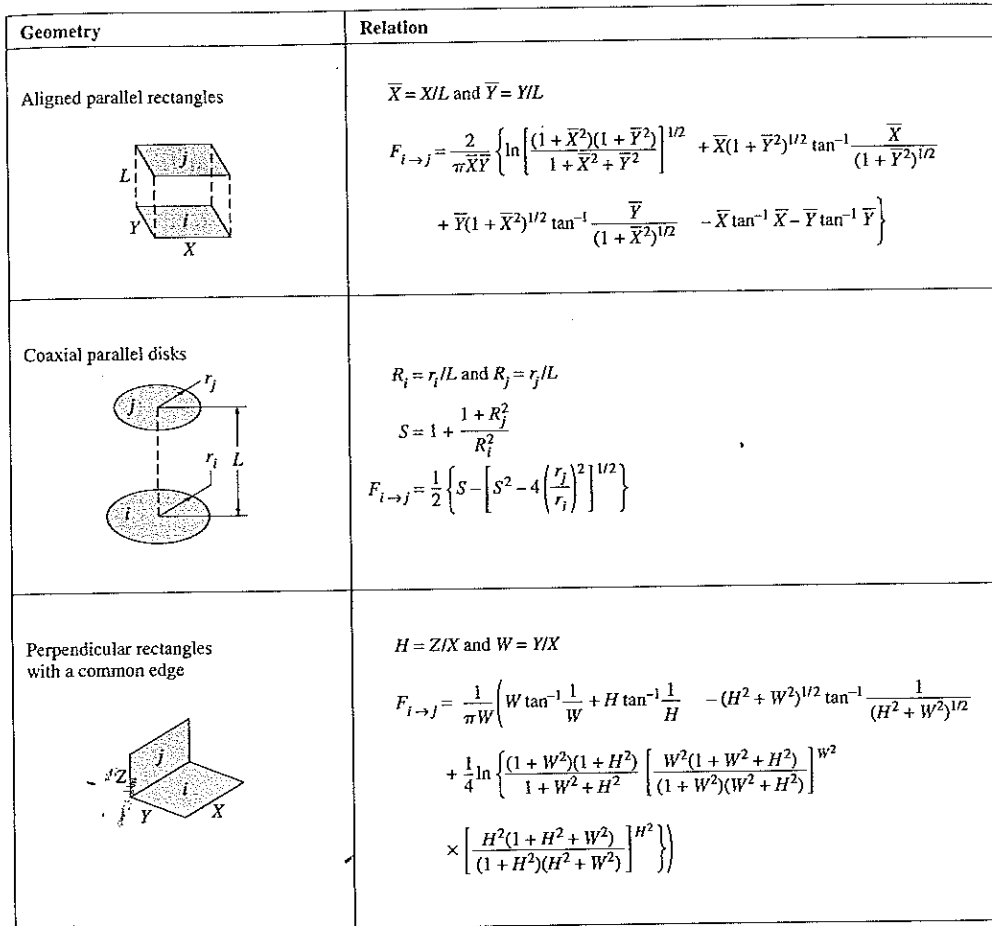 Geometry
Relation
Aligned parallel rectangles
j
L
Y
i
X
X̅ = X/L and Y̅ = Y/L
F_{i→j} = \frac{2}{πX̅Y̅} { ln [ \frac{(1 + X̅²)(1 + Y̅²)}{1 + X̅² + Y̅²} ]^{1/2} + X̅(1 + Y̅²)^{1/2} tan⁻¹ \frac{X̅}{(1 + Y̅²)^{1/2}}
+ Y̅(1 + X̅²)^{1/2} tan⁻¹ \frac{Y̅}{(1 + X̅²)^{1/2}} − X̅ tan⁻¹ X̅ − Y̅ tan⁻¹ Y̅ }
Coaxial parallel disks
r_j
j
r_i
L
i
R_i = r_i/L and R_j = r_j/L
S = 1 + \frac{1 + R_j²}{R_i²}
F_{i→j} = \frac{1}{2} { S − [ S² − 4 ( \frac{r_j}{r_i} )² ]^{1/2} }
Perpendicular rectangles
with a common edge
j
Z
i
Y
X
H = Z/X and W = Y/X
F_{i→j} = \frac{1}{πW} ( W tan⁻¹ \frac{1}{W} + H tan⁻¹ \frac{1}{H} − (H² + W²)^{1/2} tan⁻¹ \frac{1}{(H² + W²)^{1/2}}
+ \frac{1}{4} ln { \frac{(1 + W²)(1 + H²)}{1 + W² + H²} [ \frac{W²(1 + W² + H²)}{(1 + W²)(W² + H²)} ]^{W²}
× [ \frac{H²(1 + H² + W²)}{(1 + H²)(H² + W²)} ]^{H²} } )